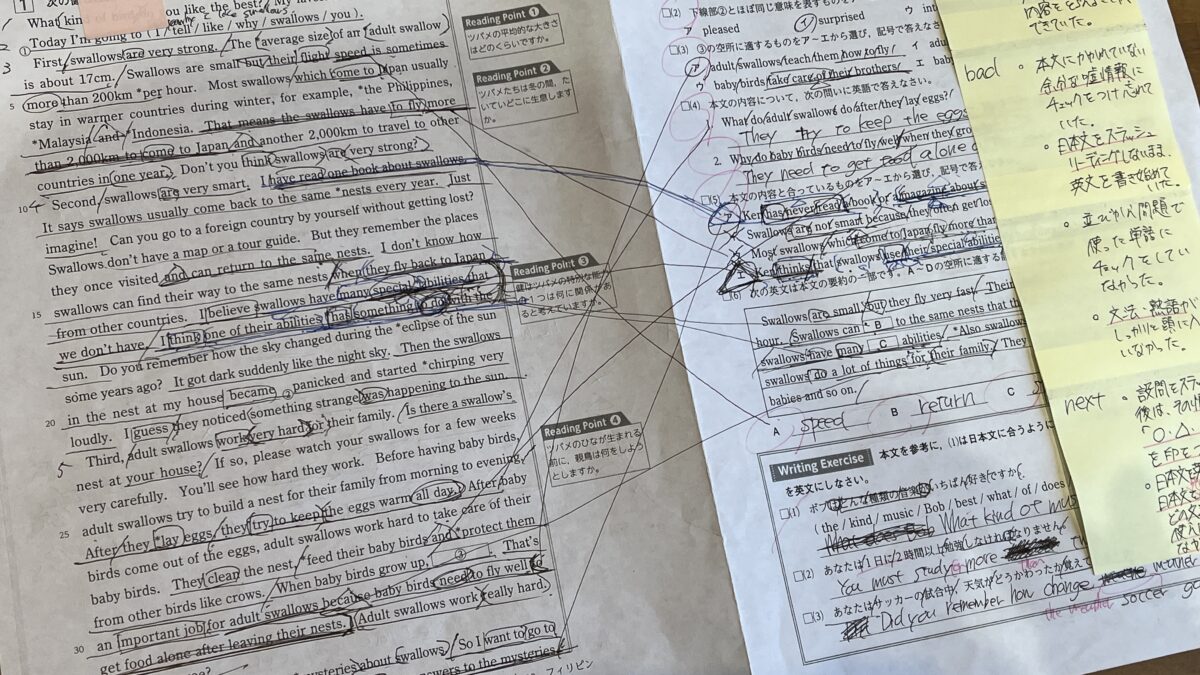 1
you like the best?
Today I'm going to ( I / tell / like / why / swallows / you ).
First, swallows are very strong. The average size of an adult swallow
is about 17cm. Swallows are small but their flight speed is sometimes
5 more than 200km *per hour. Most swallows which come to Japan usually
stay in warmer countries during winter, for example, *the Philippines,
*Malaysia and *Indonesia. That means the swallows have to fly more
than 2,000km to come to Japan and another 2,000km to travel to other
countries in one year. Don't you think swallows are very strong?
Second, swallows are very smart. I have read one book about swallows.
10 It says swallows usually come back to the same *nests every year. Just
imagine! Can you go to a foreign country by yourself without getting lost?
Swallows don't have a map or a tour guide. But they remember the places
they once visited and can return to the same nests. I don't know how
swallows can find their way to the same nests when they fly back to Japan
15 from other countries. I believe swallows have many special abilities that
we don't have. I think one of their abilities has something to do with the
sun. Do you remember how the sky changed during the *eclipse of the sun
some years ago? It got dark suddenly like the night sky. Then the swallows
in the nest at my house became ② panicked and started *chirping very
20 loudly. I guess they noticed something strange was happening to the sun.
Third, adult swallows work very hard for their family. Is there a swallow's
nest at your house? If so, please watch your swallows for a few weeks
very carefully. You'll see how hard they work. Before having baby birds,
adult swallows try to build a nest for their family from morning to evening.
25 After they *lay eggs, they try to keep the eggs warm all day. After baby
birds come out of the eggs, adult swallows work hard to take care of their
baby birds. They clean the nest, *feed their baby birds and *protect them
from other birds like crows. When baby birds grow up, ③ . That's
an important job for adult swallows because baby birds need to fly well to
30 get food alone after leaving their nests. Adult swallows work really hard,
mysteries about swallows. So I want to go to
answers to the mysteries
フィリピン
Reading Point 1
ツバメの平均的な大きさ
はどのくらいですか。
Reading Point 2
ツバメたちは冬の間、た
いていどこに生息します
か。
Reading Point 3
Reading Point 4
ツバメのひなが生まれる
前に、親鳥は何をしよう
としますか。
(2) 下線部②とほぼ同じ意味を表すものを
ア pleased イ surprised ウ
(3) ③の空所に適するものをア～エから選び、記号で答えな
ア adult swallows teach them how to fly イ
ウ baby birds take care of their brothers エ
(4) 本文の内容について、次の問いに英語で答えなさい。
1. What do adult swallows do after they lay eggs?
They try to keep the eggs
2. Why do baby birds need to fly well when they grow
They need to get food alone
(5) 本文の内容と合っているものをア～エから選び、記号で
ア Ken has never read a book or a magazine about s
Swallows are not smart because they often get los
Most swallows which come to Japan fly more than
Ken thinks that swallows use their special abilities
(6) 次の英文は本文の要約の一部です。A～Dの空所に適する
Swallows are small, but they fly very fast. Their
hour. Swallows can B to the same nests that th
swallows have many C abilities. Also swallows
swallows do a lot of things for their family. They
babies and so on.
A speed B return C
Writing Exercise 本文を参考に、(1)は日本文に合うように
を英文にしなさい。
(1) ボブはどんな種類の音楽がいちばん好きですか。
( the / kind / music / Bob / best / what / of / does /
What kind of mus
(2) あなたは1日に2時間以上勉強しなければなりません。
You must study more
(3) あなたはサッカーの試合中、天気がどう変わったか覚えて
Did you remember how change
the weather soccer g
できていた。
bad
・本文にかかれていない
余分な嘘情報に
チェックをつけ忘れて
いた。
・日本文をスラッシュ
リーディングしないまま、
英文を書き始めて
いた。
・並びかえ問題で
使った単語に
チェックをしてい
なかった。
・文法・熟語が
しっかりと頭に入って
いなかった。
next
・設問をスラ